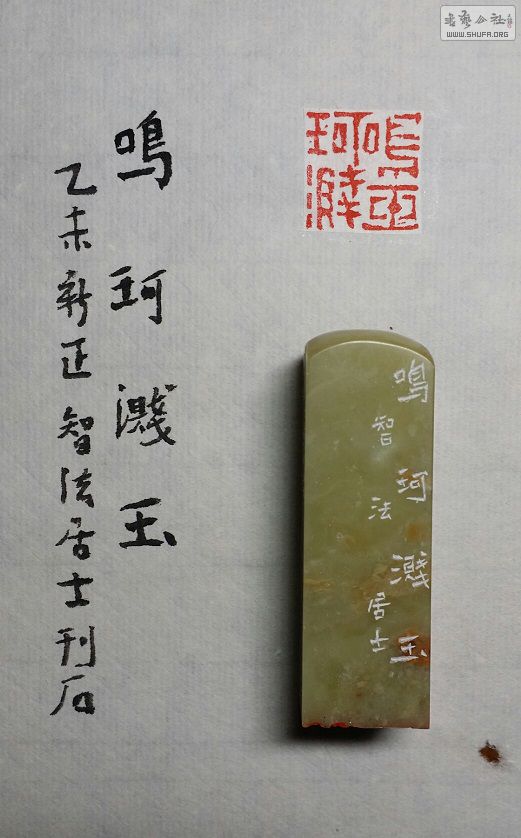 書藝公社
WWW.SHUFA.ORG
鳴珂濺玉
鳴珂濺玉
乙未新正智法居士刊石
鳴珂濺玉
智法居士